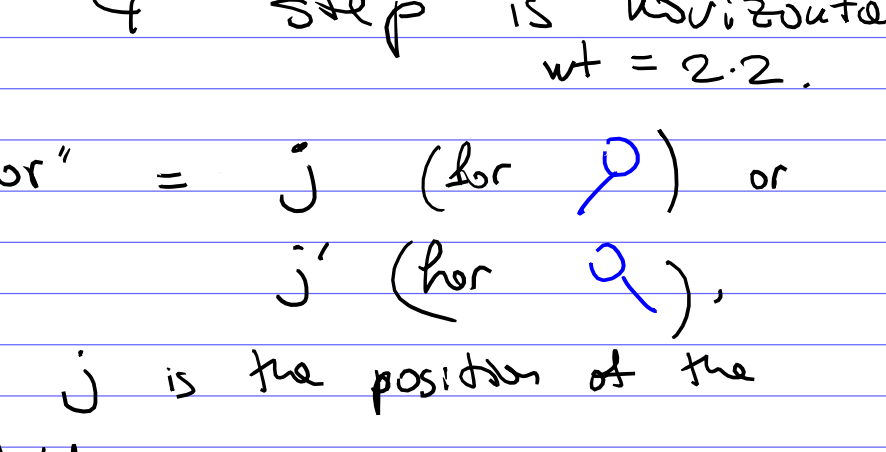 step is horizonta
wt = 2.2.
or" = j (for ) or
j' (for ),
j is the position of the